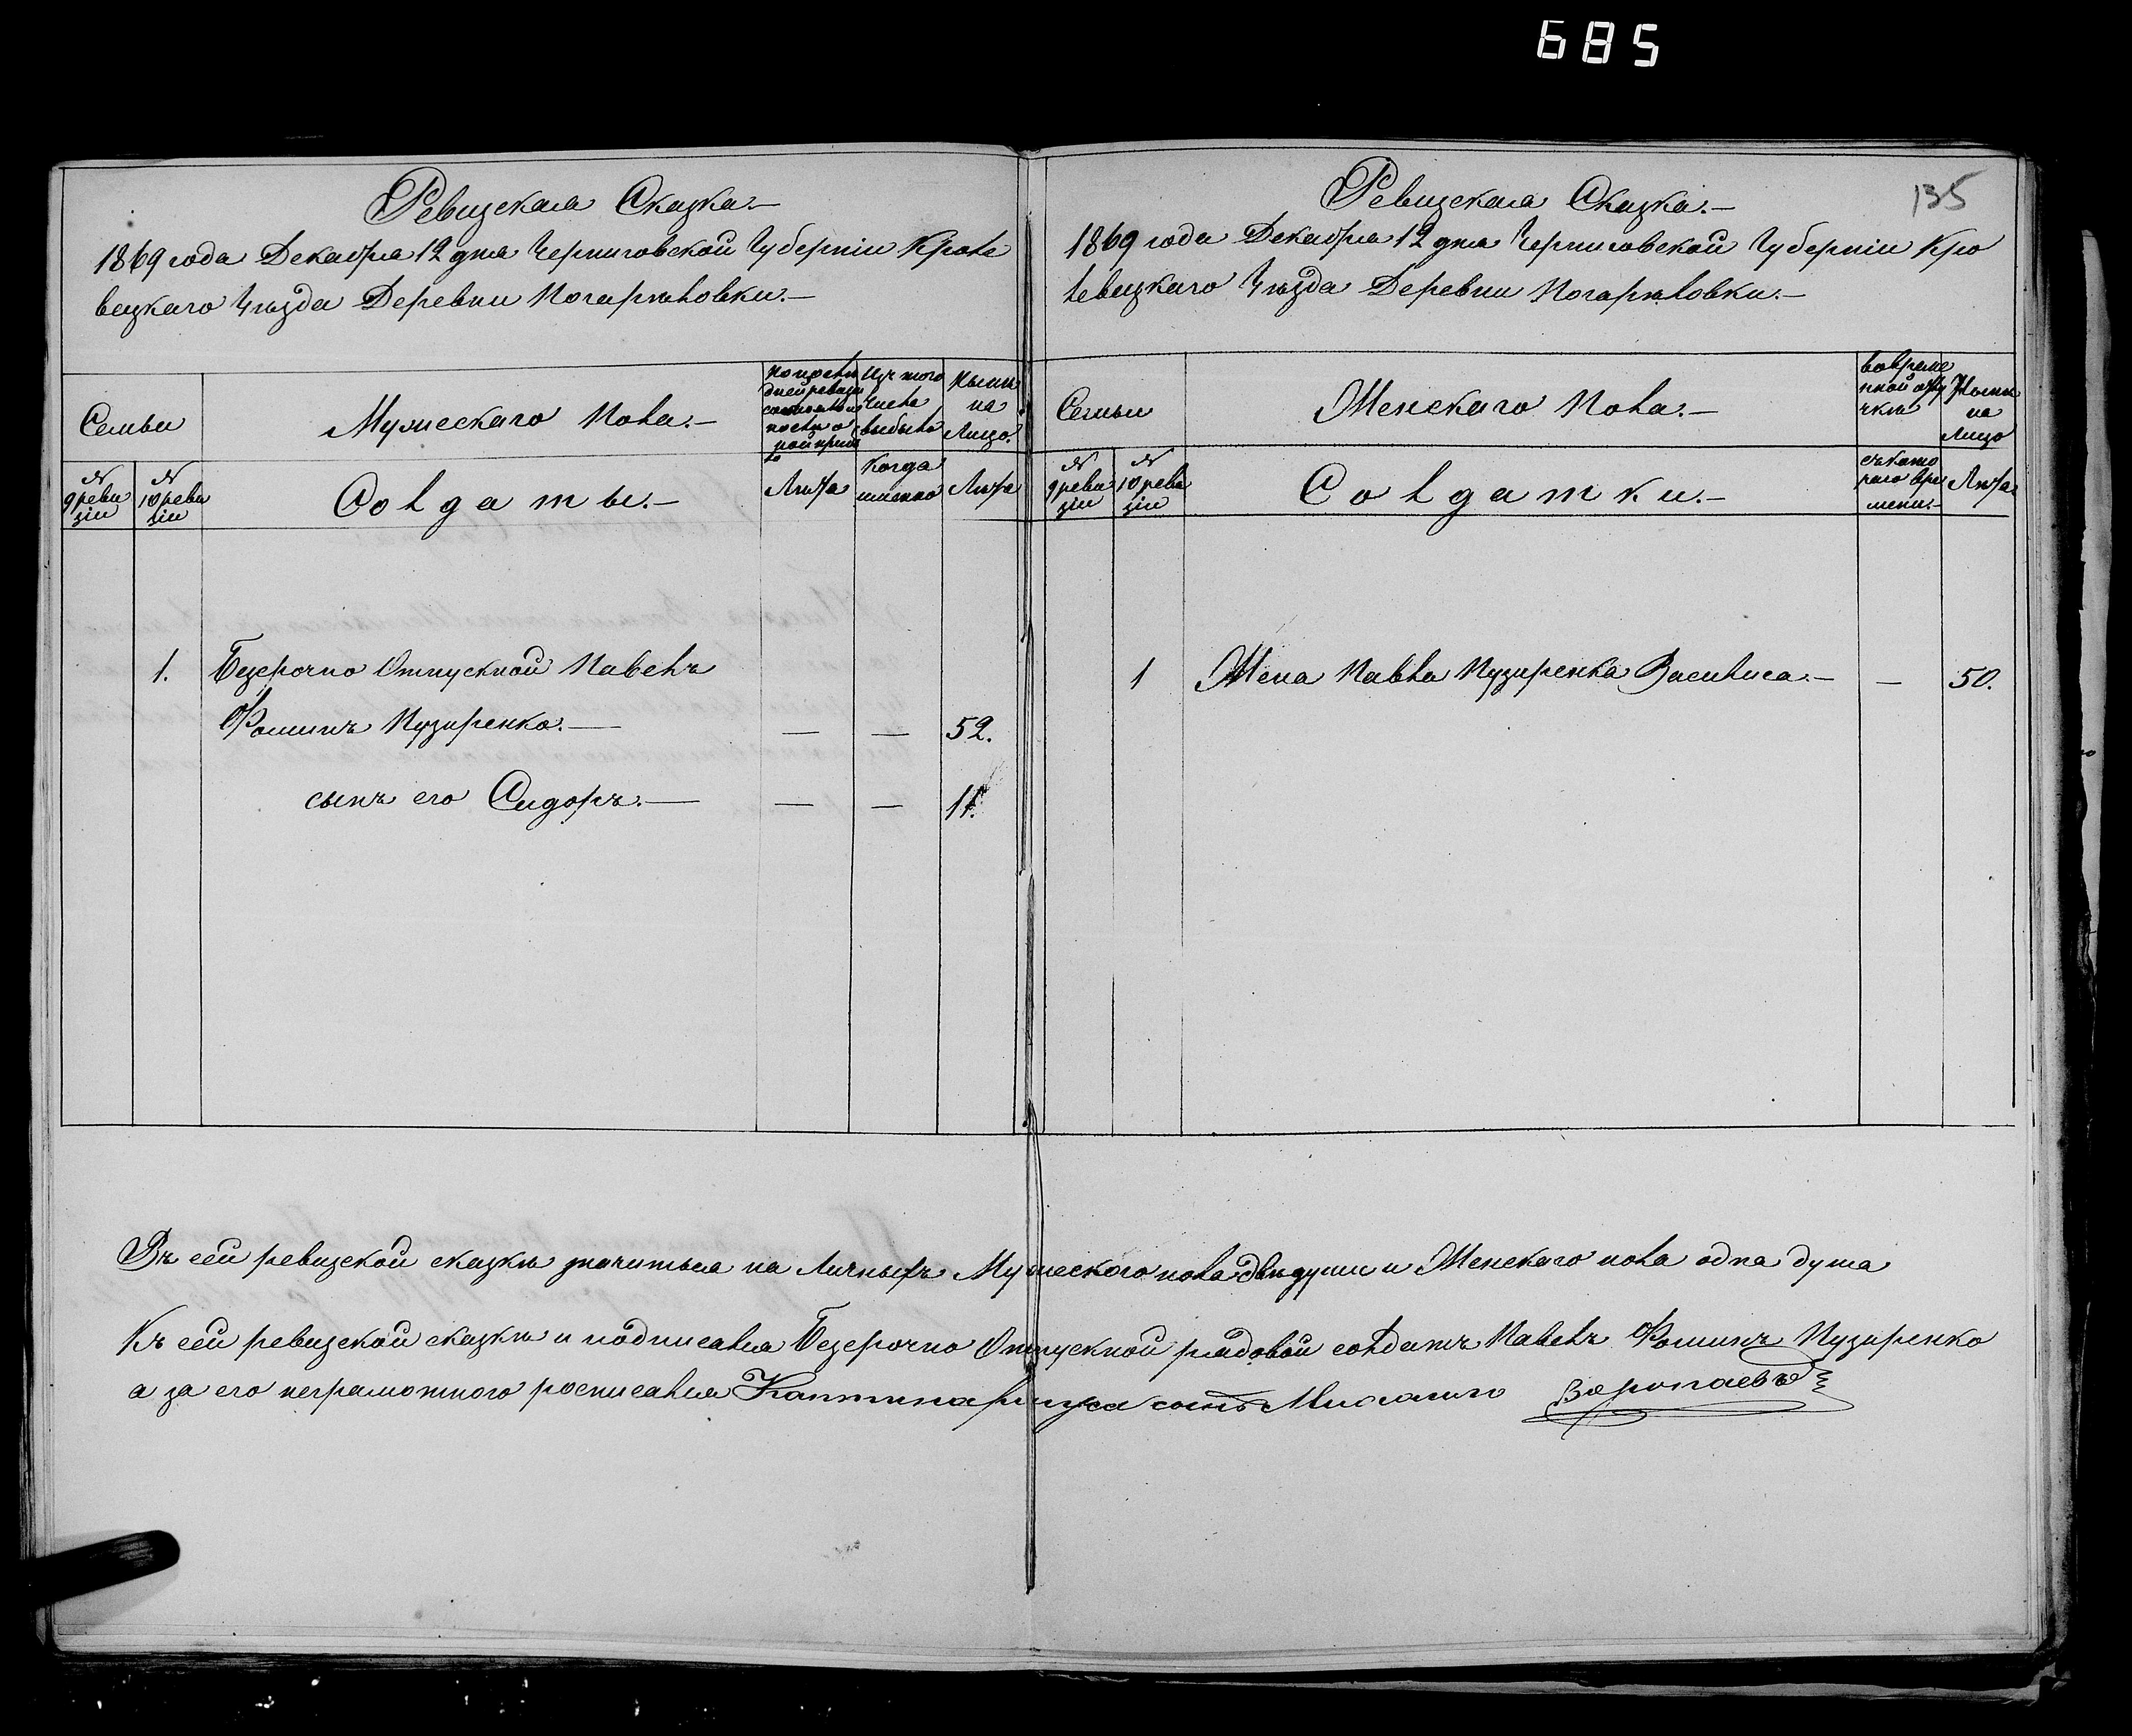 685
135
Ревизская Сказка.—
1869 года Декабря 12 дня Черниговской Губерніи Кроле
вецкаго Уѣзда Деревни Погарѣловки.—
Семьи
Мужескаго Пола.—
Изъ того
числа
выбыло
Нынѣ
на
Лицо.
№
9 реви
зіи
№
10 реви
зіи
Солдаты.—
Лѣта
Когда
именно
Лѣта
1. Безсрочно Отпускной Павелъ
Фоминъ Пузиренко.— — — 52.
сынъ его Сидоръ.— — — 11.
Ревизская Сказка.—
1869 года Декабря 12 дня Черниговской Губерніи Кро
левецкаго Уѣзда Деревни Погарѣловки.—
Семьи
Женскаго Пола.—
во време
нной отлу
чкѣ
Нынѣ
на
Лицо
№
9 реви
зіи
№
10 реви
зіи
Солдатки.—
съ како
раго вре
мени.—
Лѣта
1 Жена Павла Пузиренка Василиса.— — 50.
Въ сей ревизской сказкѣ значиться на личныхъ Мужескаго пола двѣ души и Женскаго пола одна душа
Къ сей ревизской сказкѣ и подписался Безсрочно Отпускной рядовой солдатъ Павелъ Фоминъ Пузиренко
а за его неграмотного росписался Каптинармуса сынъ Воропаевъ